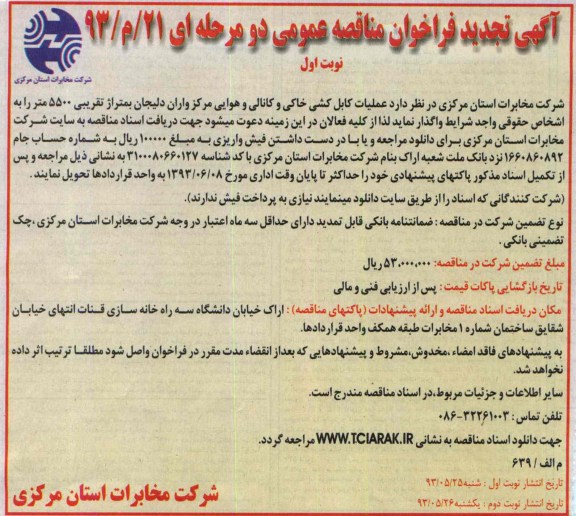 آگهی تجدید فراخوان مناقصه عمومی دو مرحله ای ۲۱/م/۹۳
نوبت اول
شرکت مخابرات استان مرکزی
شرکت مخابرات استان مرکزی در نظر دارد عملیات کابل کشی خاکی و کانالی و هوایی مرکز واران دلیجان بمتراژ تقریبی ۵۵۰۰ متر را به
اشخاص حقوقی واجد شرایط واگذار نماید لذا از کلیه فعالان در این زمینه دعوت میشود جهت دریافت اسناد مناقصه به سایت شرکت
مخابرات استان مرکزی برای دانلود مراجعه و یا با در دست داشتن فیش واریزی به مبلغ ۱۰۰۰۰۰ ریال به شماره حساب جام
۱۶۶۰۸۶۰۸۹۲ نزد بانک ملت شعبه اراک بنام شرکت مخابرات استان مرکزی با کد شناسه ۳۱۰۰۰۸۰۶۶۰۱۲۷ به نشانی ذیل مراجعه و پس
از تکمیل اسناد مذکور پاکتهای پیشنهادی خود را حداکثر تا پایان وقت اداری مورخ ۱۳۹۳/۰۶/۰۸ به واحد قراردادها تحویل نمایند.
(شرکت کنندگانی که اسناد را از طریق سایت دانلود مینمایند نیازی به پرداخت فیش ندارند).
نوع تضمین شرکت در مناقصه : ضمانتنامه بانکی قابل تمدید دارای حداقل سه ماه اعتبار در وجه شرکت مخابرات استان مرکزی ،چک
تضمینی بانکی .
مبلغ تضمین شرکت در مناقصه: ۵۳.۰۰۰.۰۰۰ ریال
تاریخ بازگشایی پاکات قیمت : پس از ارزیابی فنی و مالی
مکان دریافت اسناد مناقصه و ارائه پیشنهادات (پاکتهای مناقصه) : اراک خیابان دانشگاه سه راه خانه سازی قنات انتهای خیابان
شقایق ساختمان شماره ۱ مخابرات طبقه همکف واحد قراردادها.
به پیشنهادهای فاقد امضاء ،مخدوش،مشروط و پیشنهادهایی که بعداز انقضاء مدت مقرر در فراخوان واصل شود مطلقا ترتیب اثر داده
نخواهد شد.
سایر اطلاعات و جزئیات مربوط،در اسناد مناقصه مندرج است.
تلفن تماس : ۳۲۲۶۱۰۰۳-۰۸۶
جهت دانلود اسناد مناقصه به نشانی WWW.TCIARAK.IR مراجعه گردد.
م الف / ۶۳۹
تاریخ انتشار نوبت اول : شنبه ۹۳/۰۵/۲۵
تاریخ انتشار نوبت دوم : یکشنبه ۹۳/۰۵/۲۶
شرکت مخابرات استان مرکزی